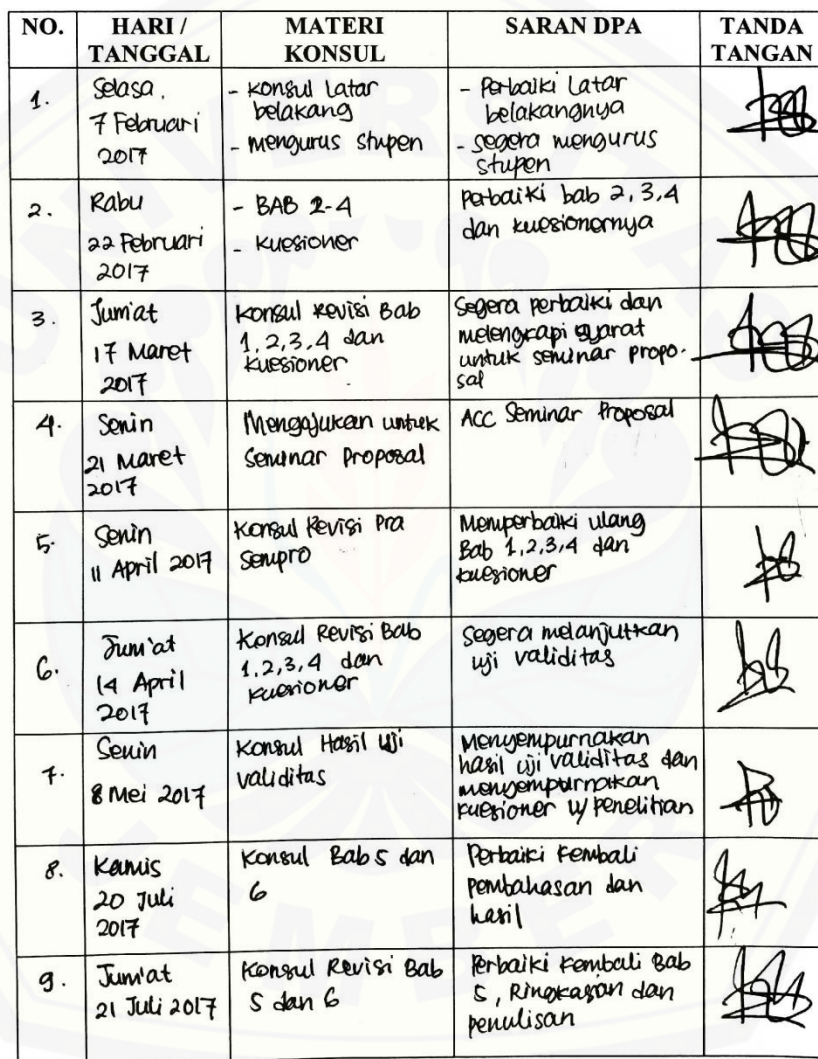 NO. HARI / TANGGAL MATERI KONSUL SARAN DPA TANDA TANGAN
1. Selasa, 7 Februari 2017
- Konsul Latar belakang
- Mengurus stupen
- Perbaiki Latar belakangnya
- segera mengurus stupen
2. Rabu 22 Februari 2017
- BAB 2-4
- Kuesioner
Perbaiki bab 2, 3, 4
dan kuesionernya
3. Jum'at 17 Maret 2017
Konsul Revisi Bab
1, 2, 3, 4 dan
Kuesioner
Segera perbaiki dan
melengkapi syarat
untuk seminar propo-
sal
4. Senin 21 Maret 2017
Mengajukan untuk
Seminar Proposal
ACC Seminar Proposal
5. Senin 11 April 2017
Konsul Revisi Pra
Sempro
Memperbaiki ulang
Bab 1,2,3,4 dan
kuesioner
6. Jum'at 14 April 2017
Konsul Revisi Bab
1,2,3,4 dan
Kuesioner
Segera melanjutkan
uji validitas
7. Senin 8 Mei 2017
Konsul Hasil Uji
validitas
Menyempurnakan
hasil uji validitas dan
menyempurnakan
kuesioner u/ penelitian
8. Kamis 20 Juli 2017
Konsul Bab 5 dan
6
Perbaiki kembali
pembahasan dan
hasil
9. Jum'at 21 Juli 2017
Konsul Revisi Bab
5 dan 6
Perbaiki kembali Bab
5, Ringkasan dan
penulisan
UNIVERSITAS JEMBER